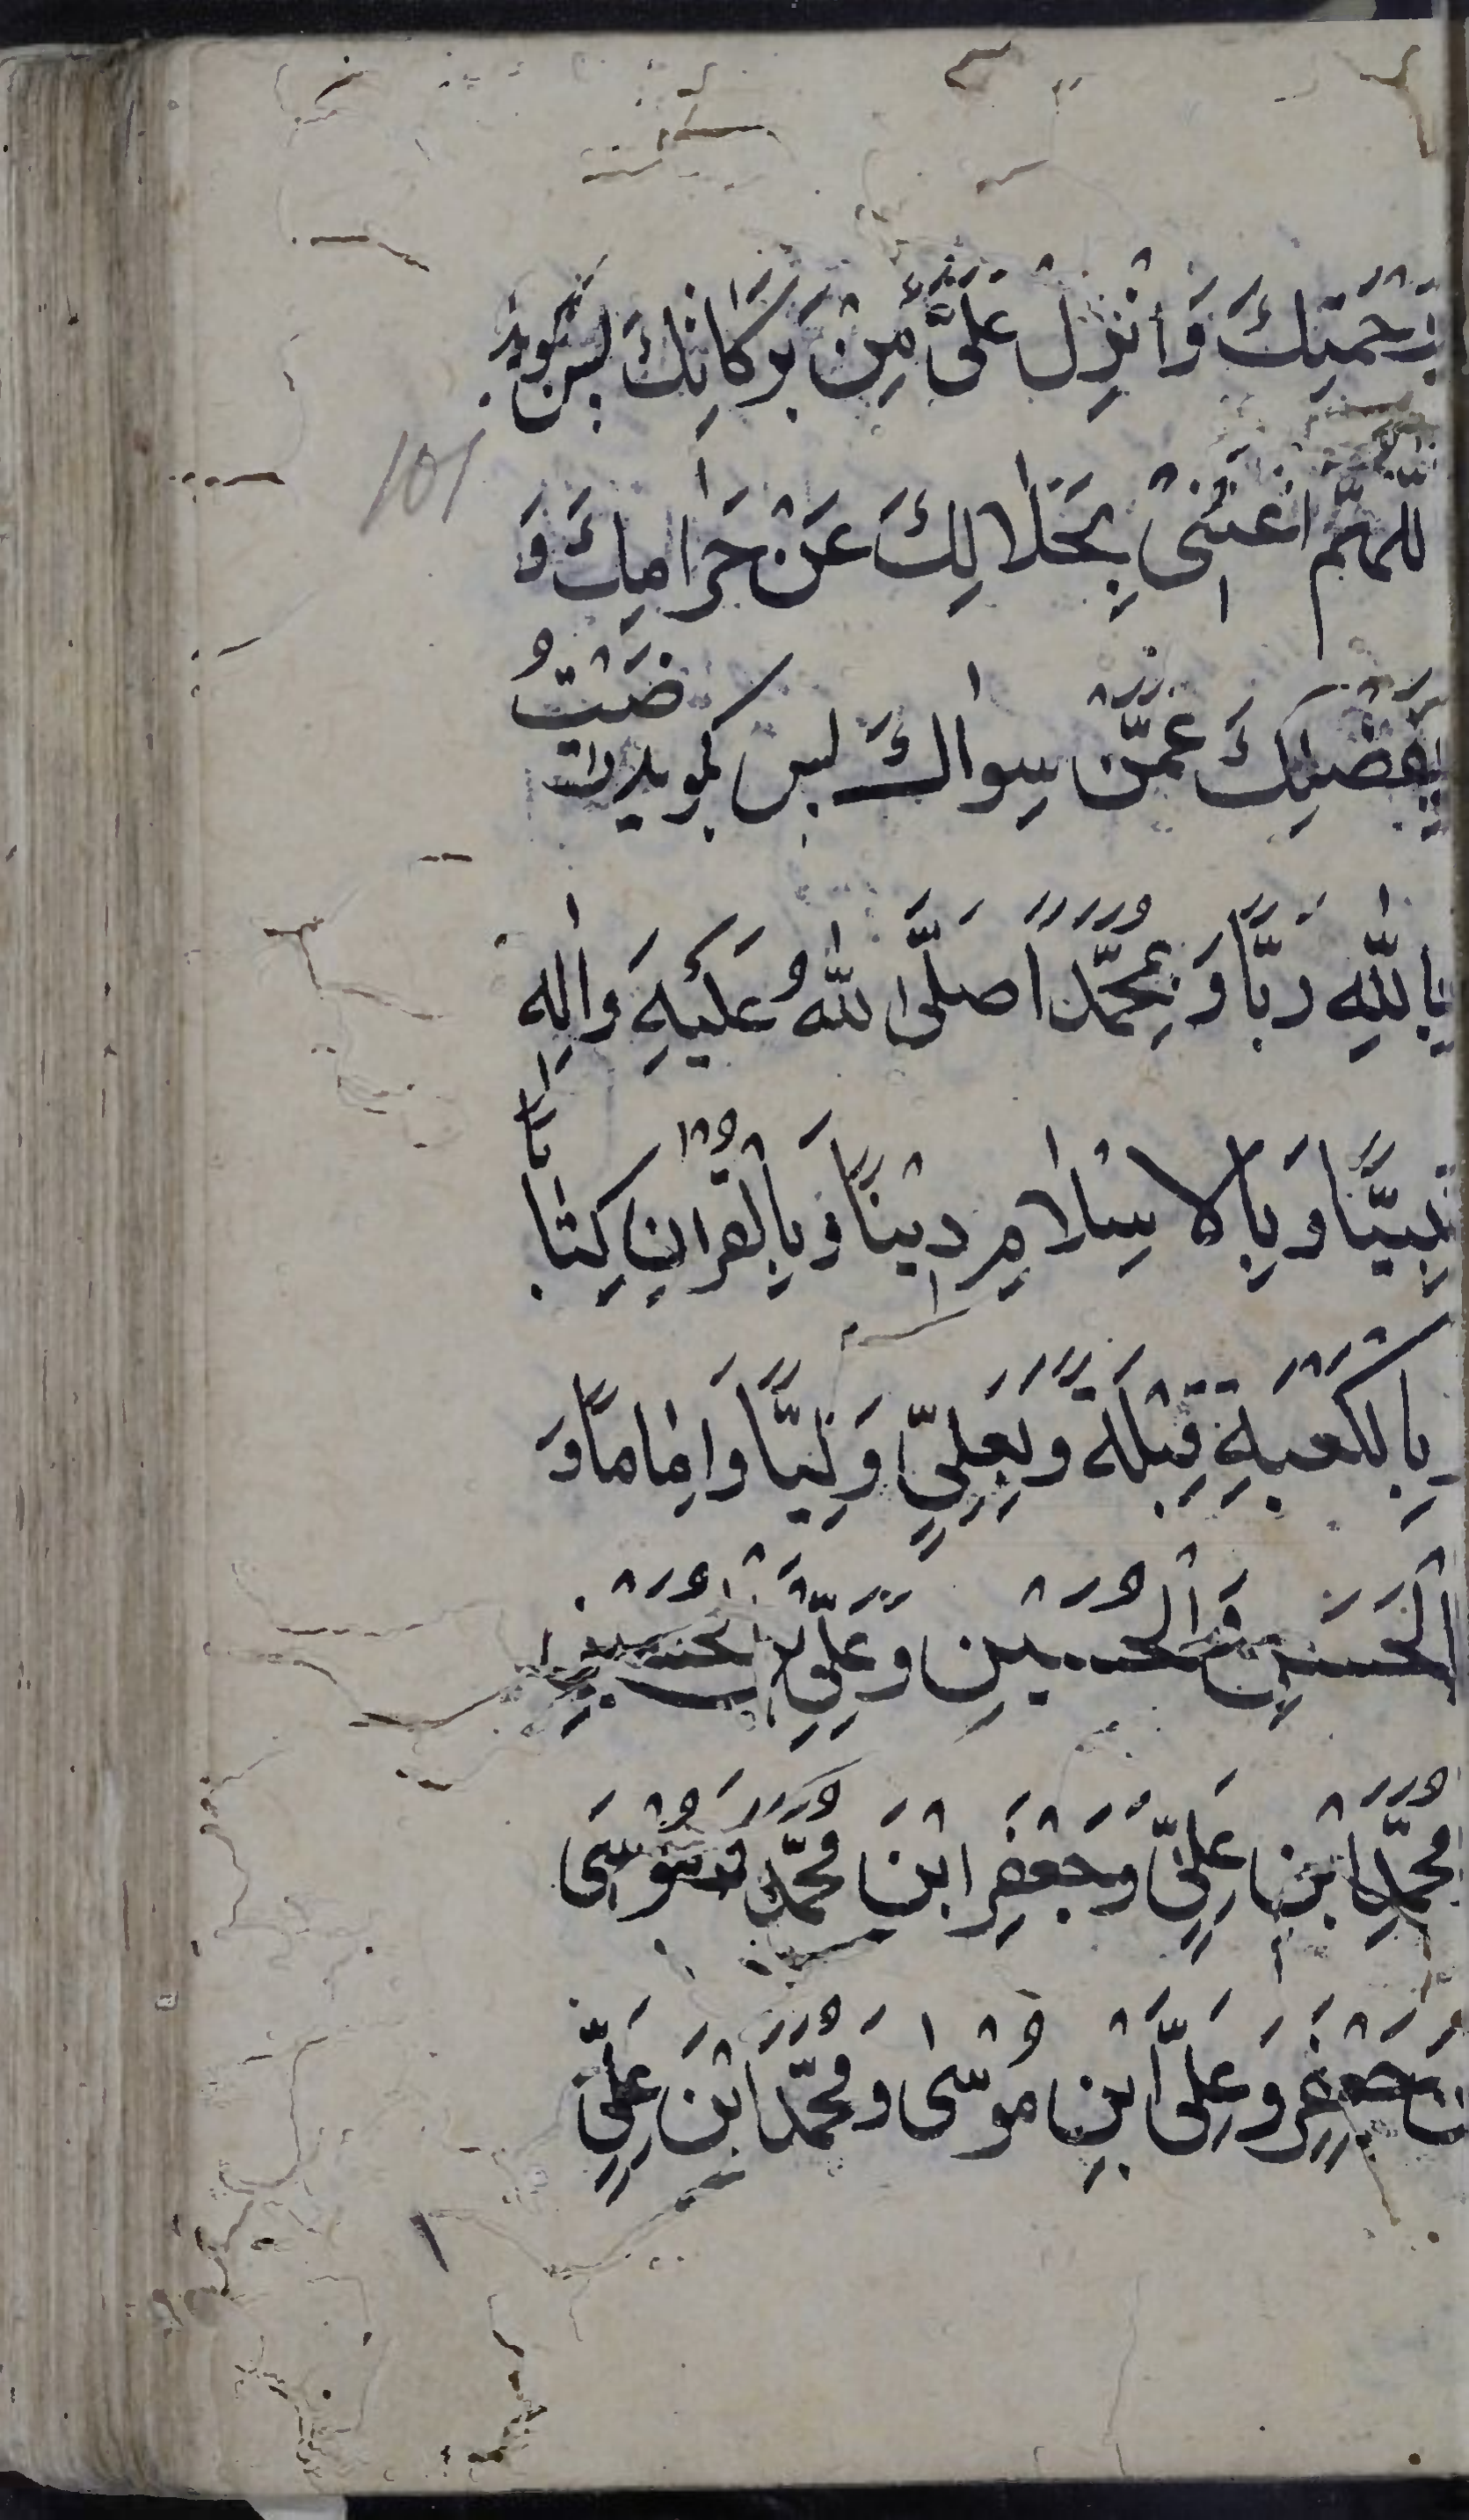 رَحْمَتِكَ وَاَنْزِلْ عَلَیَّ مِنْ بَرَكَاتِكَ پس بگوید
اللّٰهُمَّ اَغْنِنٖی بِحَلٰالِكَ عَنْ حَرٰامِكَ وَ
بِفَضْلِكَ عَمَّنْ سِوٰاكَ پس بگوید رَضٖیْتُ
بِاللّٰهِ رَبًّا وَ بِمُحَمَّدًا صَلَّی اللّٰهُ عَلَیْهِ وَاٰلِهٖ
نَبِیًّا وَ بِالْاِسْلٰامِ دٖیْنًا وَ بِالْقُرْاٰنِ كِتٰابًا
وَ بِالْكَعْبَةِ قِبْلَةً وَ بِعَلِیٍّ وَلِیًّا وَ اِمٰامًا وَ
الْحَسَنِ وَ الْحُسَیْنِ وَ عَلِیِّ بْنِ الْحُسَیْنِ
مُحَمَّدِ ابْنِ عَلِیٍّ وَ جَعْفَرِ ابْنَ مُحَمَّدٍ وَ مُوْسَی
بْنَ جَعْفَرٍ وَ عَلِیَّ ابْنِ مُوْسٰی وَ مُحَمَّدَ ابْنَ عَلِیٍّ
101